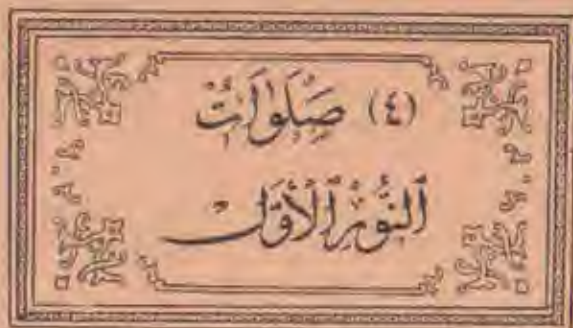 (٤) صَلَوَاتُ
النُّوْرِ الْأَوَّلِ